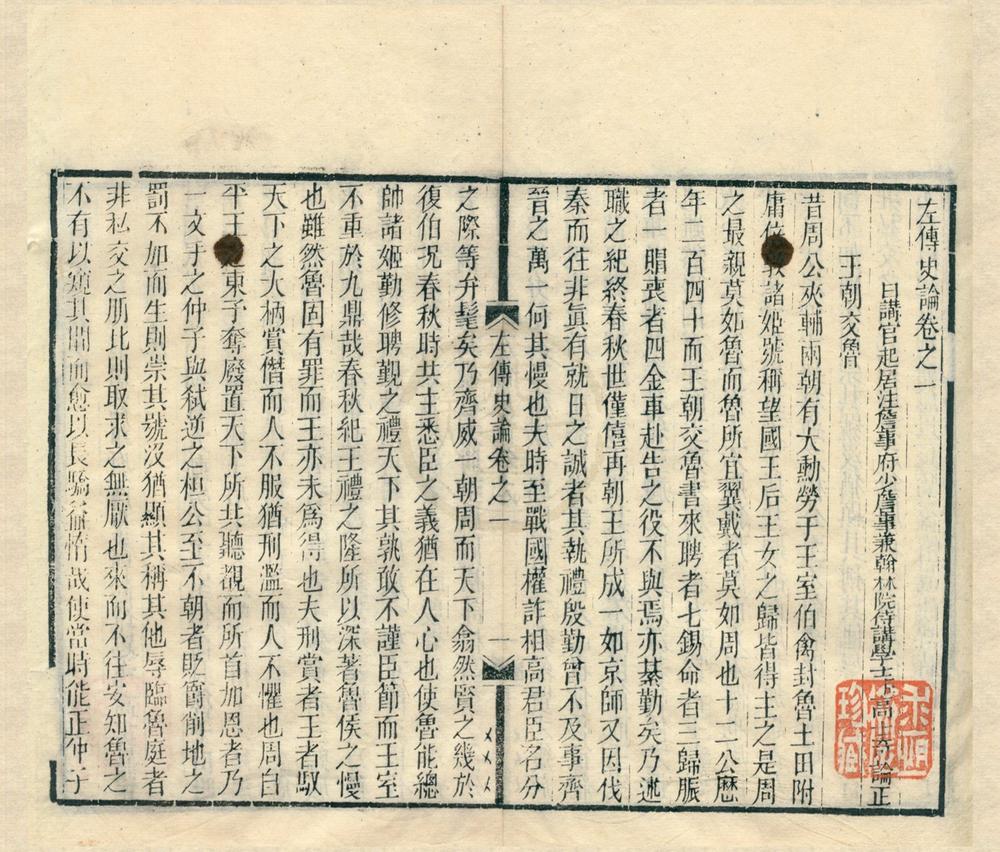 左傳史論卷之一
日講官起居注詹事府少詹事兼翰林院侍講學士高士奇論正
王朝交魯
昔周公夾輔兩朝有大勳勞于王室伯禽封魯土田附
庸倍敦諸姬號稱望國王后王女之歸皆得主之是周
之最親莫如魯而魯所宜翼戴者莫如周也十二公歷
年二百四十而王朝交魯書來聘者七錫命者三歸脤
者一賵喪者四金車赴告之役不與焉亦綦勤矣乃述
職之紀終春秋世僅僖再朝王所成一如京師又因伐
秦而往非真有就日之誠者其執禮殷勤曾不及事齊
晉之萬一何其慢也夫時至戰國權詐相高君臣名分
左傳史論卷之一
一
之際等弁髦矣乃齊威一朝周而天下翕然賢之幾於
復伯况春秋時共主悉臣之義猶在人心也使魯能總
帥諸姬勤修聘覲之禮天下其孰敢不謹臣節而王室
不重於九鼎哉春秋紀王禮之隆所以深著魯侯之慢
也雖然魯固有罪而王亦未為得也夫刑賞者王者馭
天下之大柄賞僭而人不服猶刑濫而人不懼也周自
平王東子奪廢置天下所共聽覩而所首加恩者乃
一文手之仲子與弑逆之桓公至不朝者貶爵削地之
罰不加而生則崇其號沒猶顯其稱其他辱臨魯庭者
非私交之朋比則取求之無厭也來而不往安知魯之
不有以窺其間而愈以長驕益惰哉使當時能正仲子